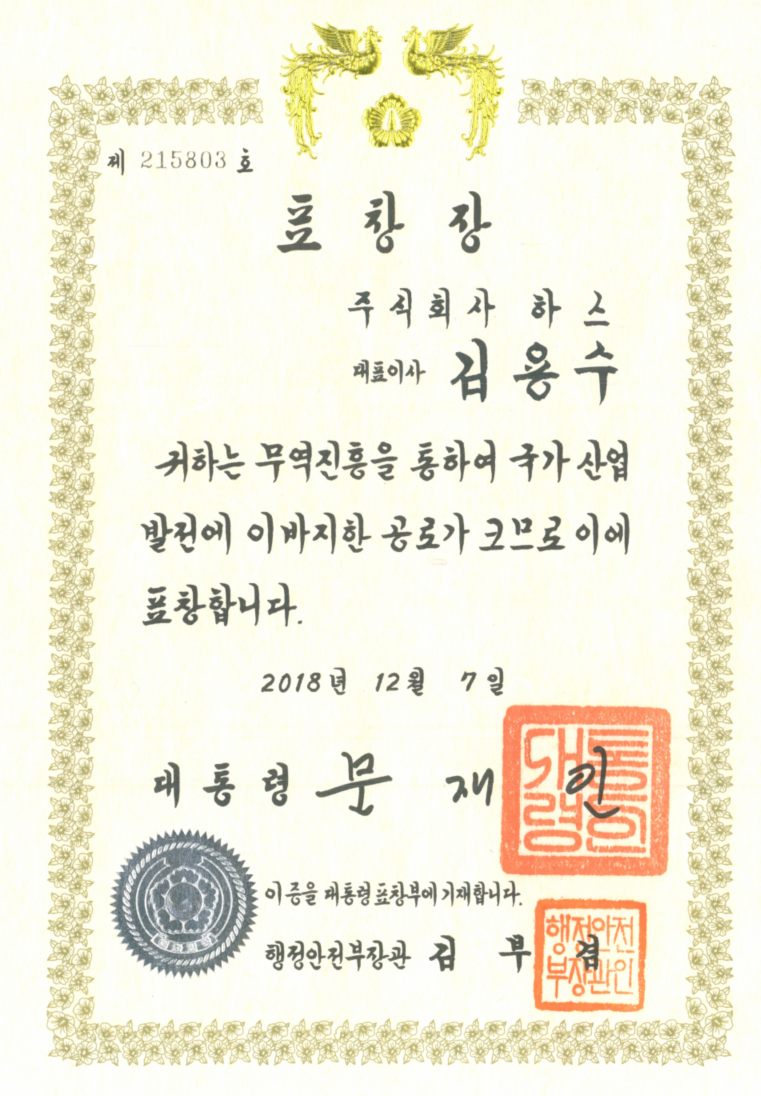 제 215803 호
표창장
주식회사 하스
대표이사 김용수
귀하는 무역진흥을 통하여 국가 산업
발전에 이바지한 공로가 크므로 이에
표창합니다.
2018년 12월 7일
대통령 문재인
대통령인
이 증을 대통령표창부에 기재합니다.
행정안전부장관 김부겸
행정안전
부장관인